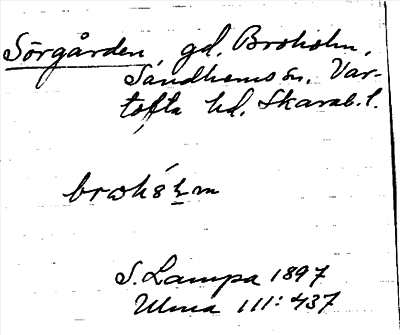 Sörgården, gd. Broholm,
Sandhems sn. Var-
tofta hd. Skarab. l.
S. Lampa 1897
Ulma III: 437